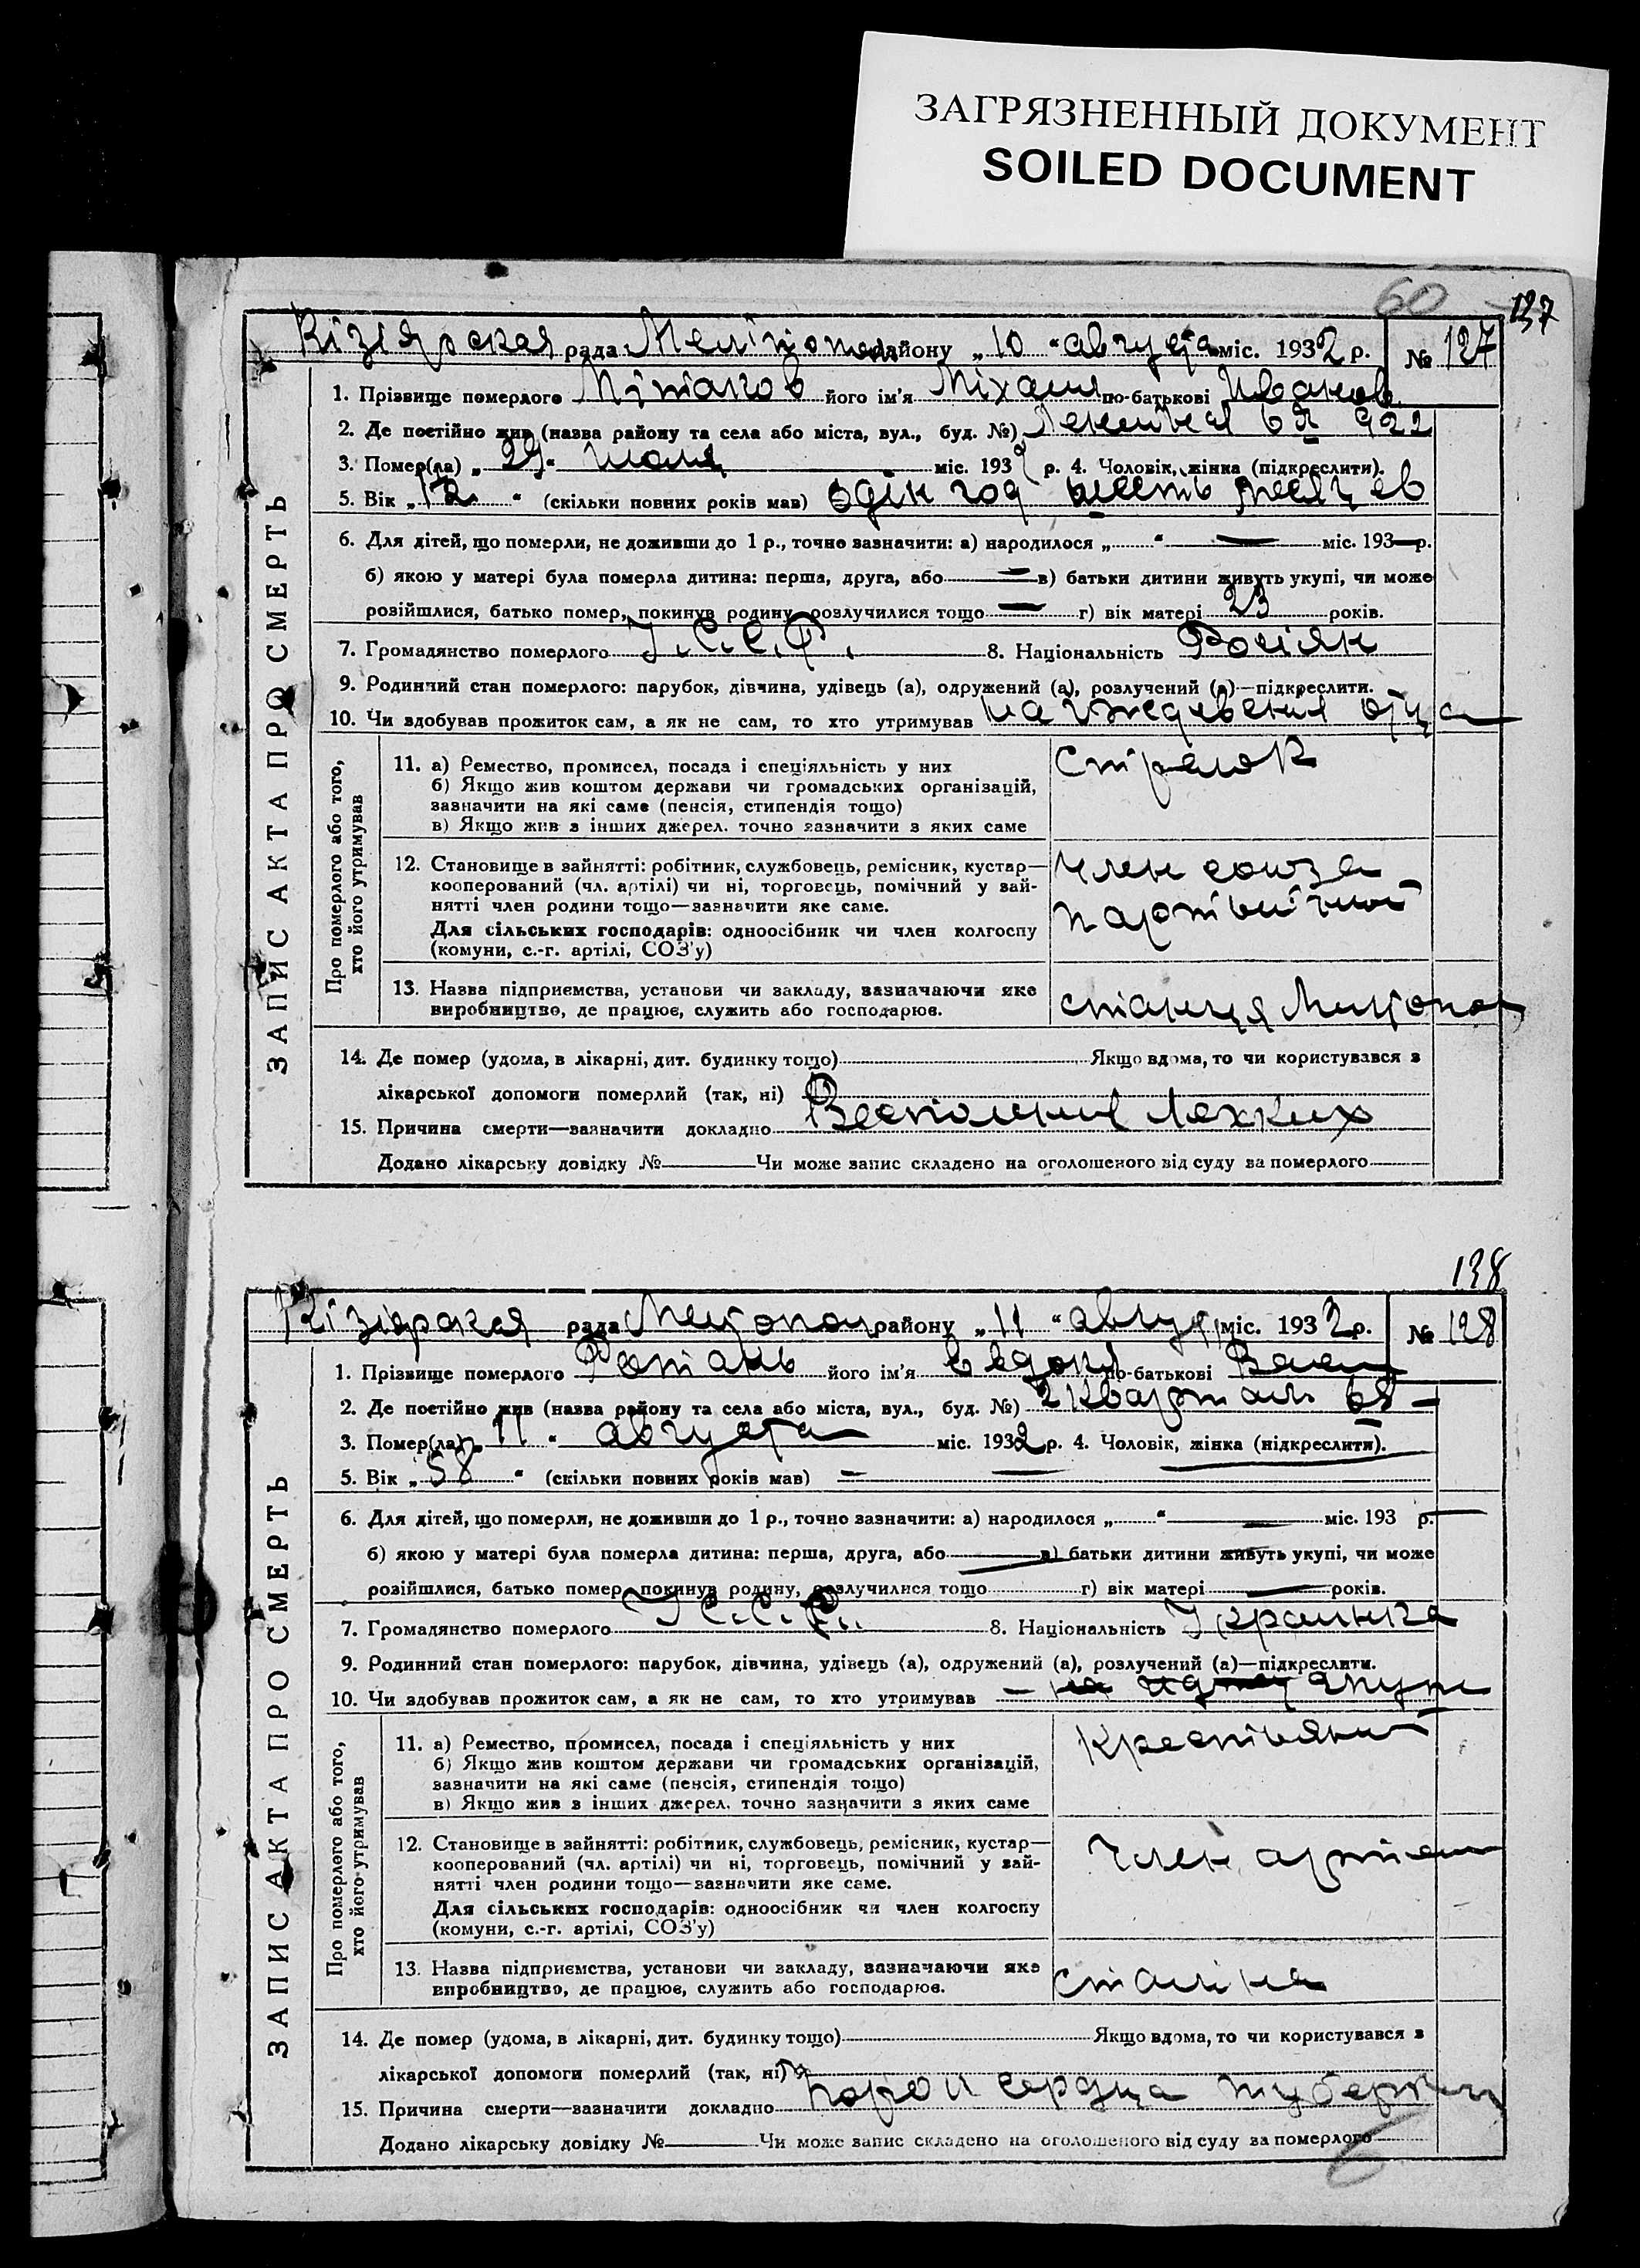 ЗАГРЯЗНЕННЫЙ ДОКУМЕНТ
SOILED DOCUMENT
60 137
Кізіярская рада Меліпопол району „ 10 “ августа міс. 1932 р. № 127
1. Прізвище померлого його ім'я Міхаил по-батькові Иванов
2. Де постійно жив (назва району та села або міста, вул., буд. №) 922
3. Помер(ла) „ 29 “ июля міс. 193 р. 4. Чоловік, жінка (підкреслити).
5. Вік „ “ (скільки повних років мав) одін год шесть месяцев
6. Для дітей, що померли, не доживши до 1 р., точно зазначити: а) народилося „ “ — міс. 193—р.
б) якою у матері була померла дитина: перша, друга, або — в) батьки дитини живуть укупі, чи може
розійшлися, батько помер, покинув родину, розлучилися тощо — г) вік матері 23 років.
7. Громадянство померлого У.С.С.Р. 8. Національність Росіян
9. Родинний стан померлого: парубок, дівчина, удівець (а), одружений (а), розлучений (а)—підкреслити.
10. Чи здобував прожиток сам, а як не сам, то хто утримував на отца
ЗАПИС АКТА ПРО СМЕРТЬ
Про померлого або того, хто його утримував
11. а) Ремество, промисел, посада і спеціяльність у них Стрелок
б) Якщо жив коштом держави чи громадських організацій,
зазначити на які саме (пенсія, стипендія тощо)
в) Якщо жив з інших джерел. точно зазначити з яких саме
12. Становище в зайнятті: робітник, службовець, ремісник, кустар— член союза
кооперований (чл. артілі) чи ні, торговець, помічний у зай-
нятті член родини тощо—зазначити яке саме.
Для сільських господарів: одноосібник чи член колгоспу
(комуни, с.-г. артілі, СОЗ'у)
13. Назва підприємства, установи чи закладу, зазначаючи яке
виробництво, де працює, служить або господарює. станция
14. Де помер (удома, в лікарні, дит. будинку тощо) Якщо вдома, то чи користувався з
лікарської допомоги померлий (так, ні)
15. Причина смерти—зазначити докладно Воспаления Лохких
Додано лікарську довідку № Чи може запис складено на оголошеного від суду за померлого
138
Кізіярская рада району „ 11 “ август міс. 1932 р. № 128
1. Прізвище померлого його ім'я Евдокия по-батькові
2. Де постійно жив (назва району та села або міста, вул., буд. №) 2 квартал 68 —
3. Помер(ла) „ 11 “ августа міс. 1932 р. 4. Чоловік, жінка (підкреслити).
5. Вік „ 58 “ (скільки повних років мав) — —
6. Для дітей, що померли, не доживши до 1 р., точно зазначити: а) народилося „ “ — міс. 193 р.
б) якою у матері була померла дитина: перша, друга, або — в) батьки дитини живуть укупі, чи може
розійшлися, батько помер, покинув родину, розлучилися тощо г) вік матері — років.
7. Громадянство померлого У.С.С.Р. 8. Національність Украинка
9. Родинний стан померлого: парубок, дівчина, удівець (а), одружений (а), розлучений (а)—підкреслити.
10. Чи здобував прожиток сам, а як не сам, то хто утримував —
ЗАПИС АКТА ПРО СМЕРТЬ
Про померлого або того, хто його утримував
11. а) Ремество, промисел, посада і спеціяльність у них
б) Якщо жив коштом держави чи громадських організацій,
зазначити на які саме (пенсія, стипендія тощо)
в) Якщо жив з інших джерел. точно зазначити з яких саме
12. Становище в зайнятті: робітник, службовець, ремісник, кустар— член артели
кооперований (чл. артілі) чи ні, торговець, помічний у зай-
нятті член родини тощо—зазначити яке саме.
Для сільських господарів: одноосібник чи член колгоспу
(комуни, с.-г. артілі, СОЗ'у)
13. Назва підприємства, установи чи закладу, зазначаючи яке
виробництво, де працює, служить або господарює. сталіна
14. Де помер (удома, в лікарні, дит. будинку тощо) Якщо вдома, то чи користувався з
лікарської допомоги померлий (так, ні)
15. Причина смерти—зазначити докладно порок сердца
Додано лікарську довідку № Чи може запис складено на оголошеного від суду за померлого